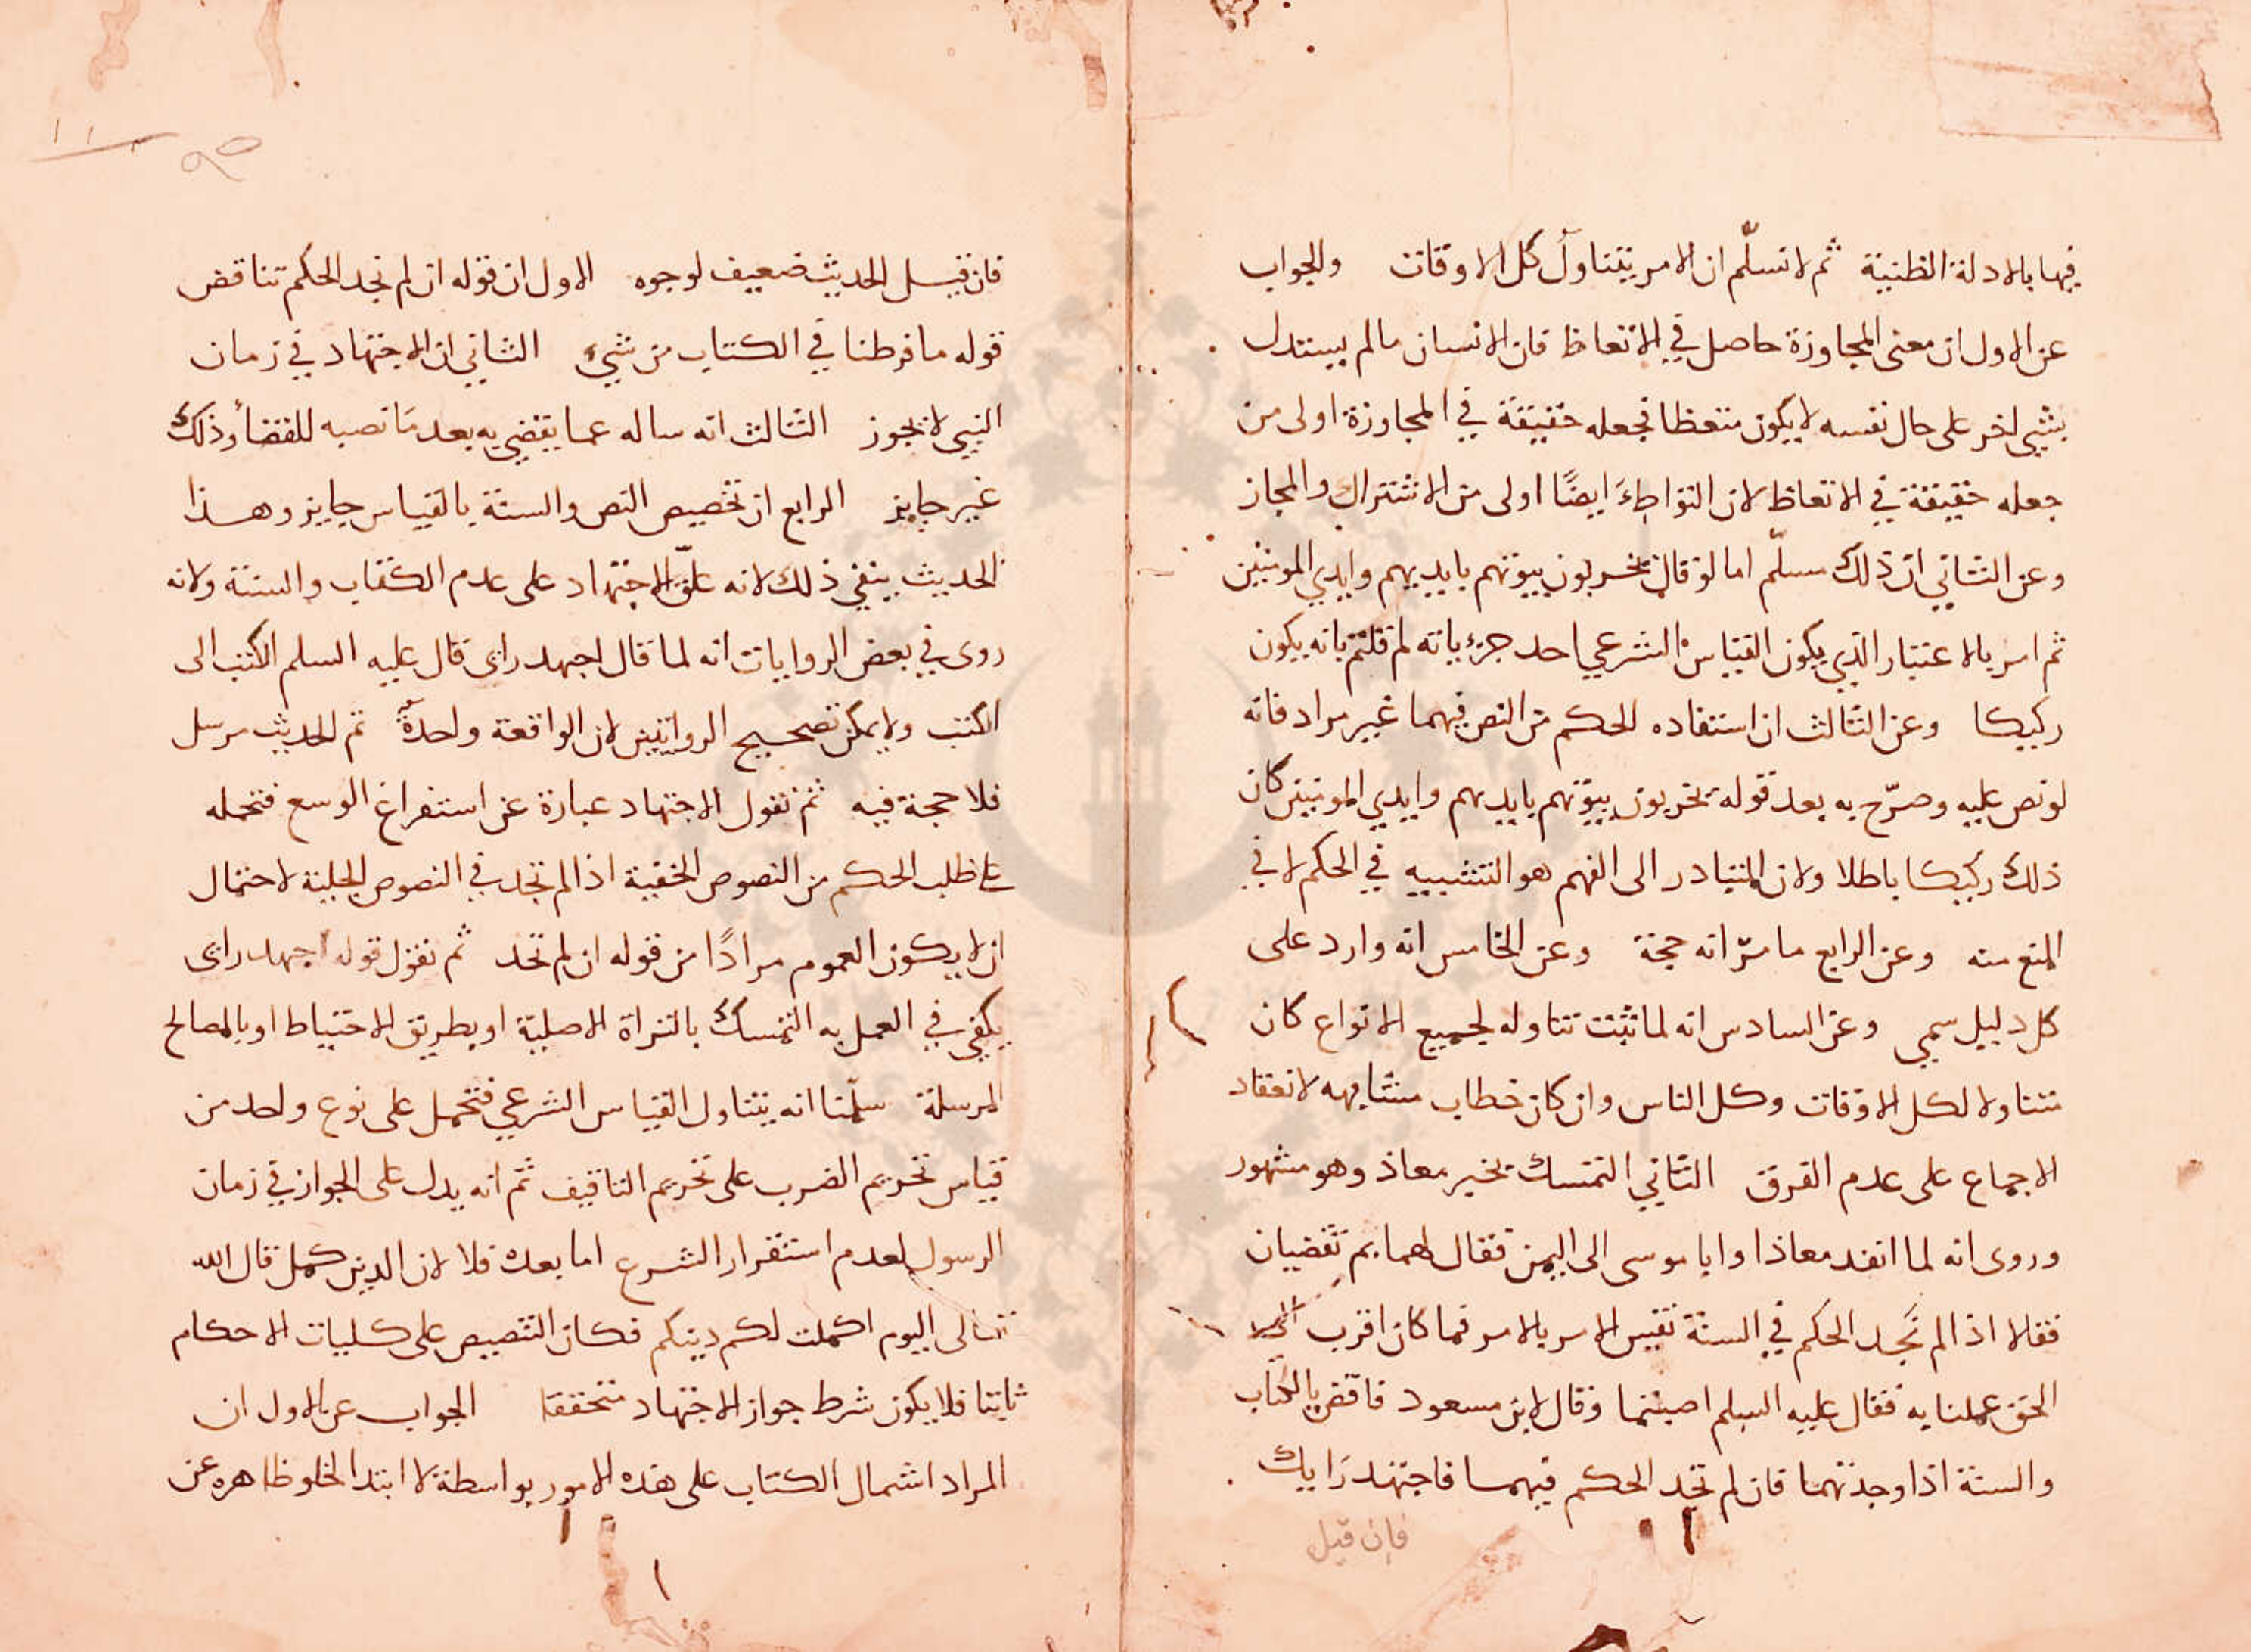 فيها بالادلة الظنية ثم لا نسلّم ان الامر يتناول كل الاوقات والجواب
عن الاول ان معنى المجاوزة حاصل في الاتعاظ فان الانسان مالم يستدل
بشيى اخر على حال نفسه لا يكون متعظا فجعله حقيقة في المجاوزة اولى من
جعله حقيقة في الاتعاظ لان التواطىَ ايضًا اولى من الاشتراك والمجاز
وعن الثاني ان ذلك مسلّم اما لو قال يخربون بيوتهم بايديهم وايدي المومنين
ثم امر بالاعتبار الذي يكون القياس الشرعي احد جزءياته لم قلتم بانه يكون
ركيكا وعن الثالث ان استفاده الحكم من النص فيهما غير مراد فانه
لو نص عليه وصرّح به بعد قوله يخربون بيوتهم بايديهم وايدي المومنين كان
ذلك ركيكا باطلا ولان المتبادر الى الفهم هو التشبيه في الحكم لا في
المنع منه وعن الرابع ما مرّ انه حجة وعن الخامس انه وارد على
كل دليل سمعي وعن السادس انه لما ثبت تناوله لجميع الانواع كان
متناولا لكل الاوقات وكل الناس وان كان خطاب مشابهه لانعقاد
الاجماع على عدم الفرق الثاني التمسك بخبر معاذ وهو مشهور
وروى انه لما انفد معاذا وابا موسى الى اليمن فقال لهما بم تقضيان
فقالا اذا لم نَجد الحكم في السنة نقيس الامر بالامر فما كان اقرب الى
الحق عملنا به فقال عليه السلم اصبتما وقال لابن مسعود فاقض بالكتاب
والسنة اذا وجدتهما فان لم تجد الحكم فيهما فاجتهد رَايك
فإن قيل
فان قيل الحديث ضعيف لوجوه الاول ان قوله ان لم تجد الحكم تناقض
قوله ما فرطنا في الكتاب من شيء الثاني ان الاجتهاد في زمان
النبي لا يجوز الثالث انه ساله عما يقضي به بعد مَا نصبه للقضأ وذلك
غير جايز الرابع ان تخصيص النص والسنة بالقياس جايز وهذا
الحديث ينفي ذلك لانه علّق الاجتهاد على عدم الكتاب والسنة ولانه
روى في بعض الروايات انه لما قال اجهد راى قال عليه السلم اكتب الى
اكتب ولا يمكن تصحيح الروايتين لان الواقعة واحدة ثم الحديث مرسل
فلا حجة فيه ثم نقول الاجتهاد عبارة عن استفراغ الوسع فتحمله
على طلب الحكم من النصوص الخفية اذا لم تجد في النصوص الجلية لاحتمال
ان لا يكون العموم مرادًا من قوله ان لم تجد ثم نقول قوله اجهد راى
يكفي في العمل به التمسك بالبراة الاصلية او بطريق الاحتياط او بالمصالح
المرسلة سلّمنا انه يتناول القياس الشرعي فتحمل على نوع واحد من
قياس تحريم الضرب على تحريم التافيف ثم انه يدل على الجواز في زمان
الرسول لعدم استقرار الشرع اما بعده فلا لان الدين كمل قال الله
تعالى اليوم اكملت لكم دينكم فكان التنصيص على كليات الاحكام
ثابتا فلا يكون شرط جواز الاجتهاد متحققا الجواب عن الاول ان
المراد اشمال الكتاب على هذه الامور بواسطة لا ابتدا لخلو ظاهره عن